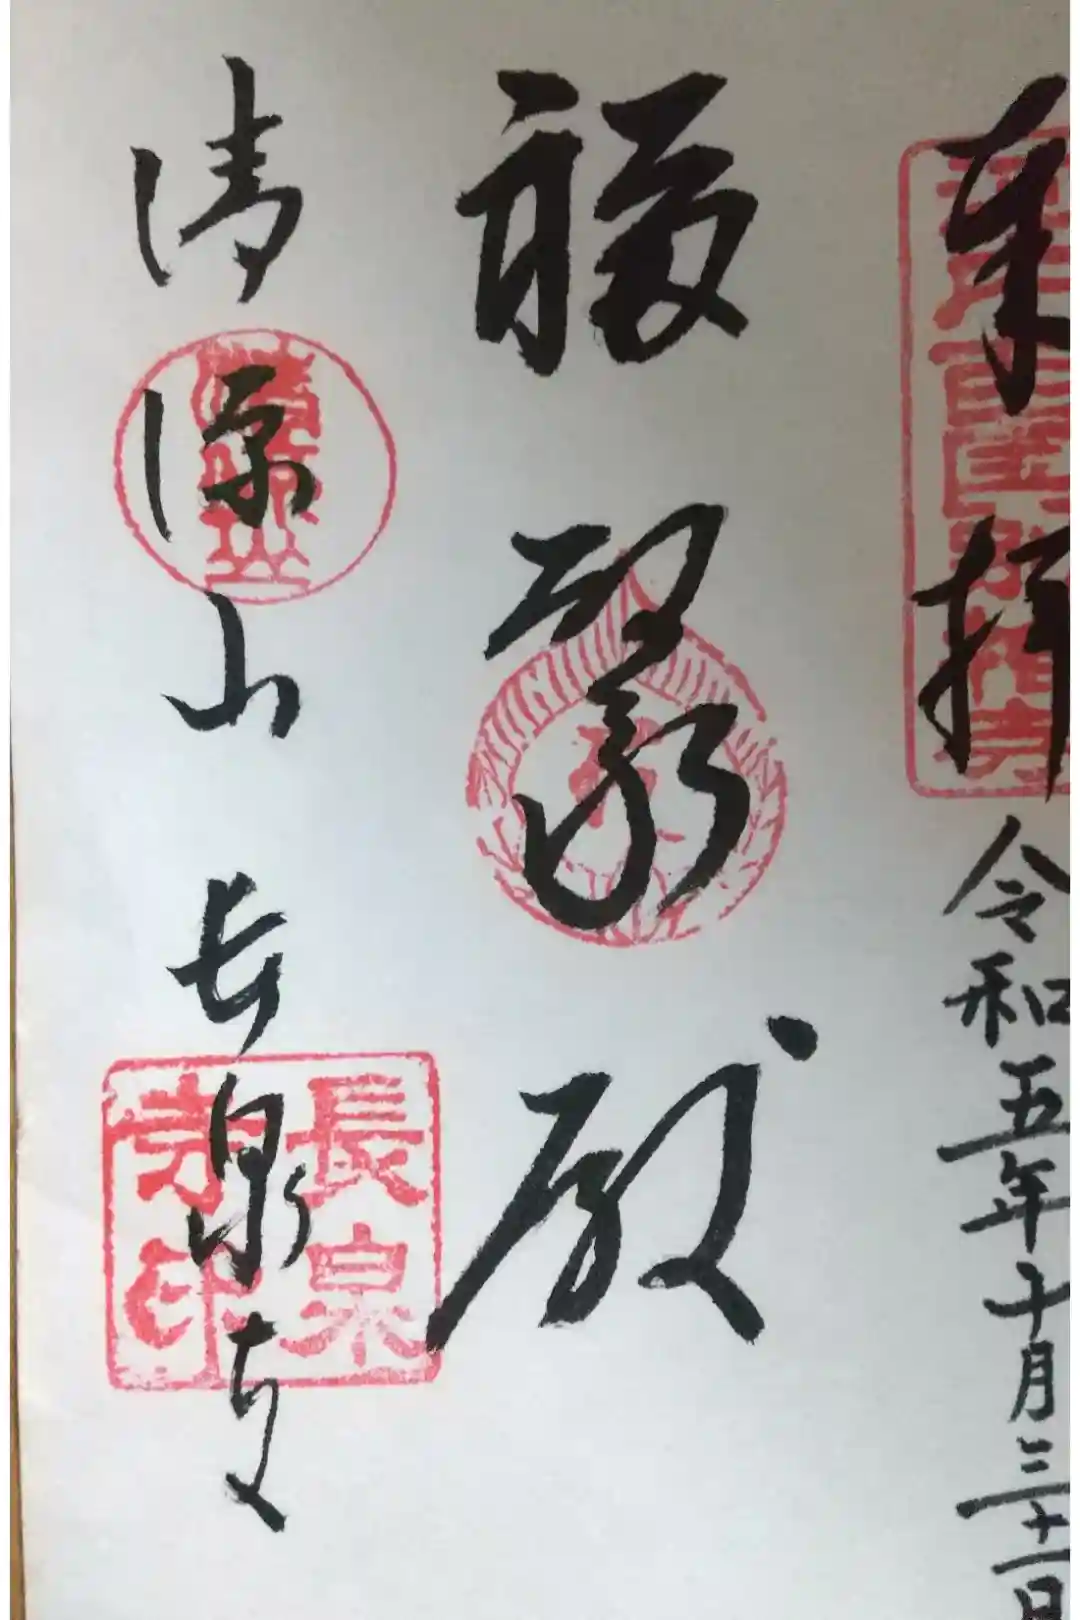 奉拝
令和五年十月三十一日
福聚殿
清涼山 長泉寺
長泉
寺印